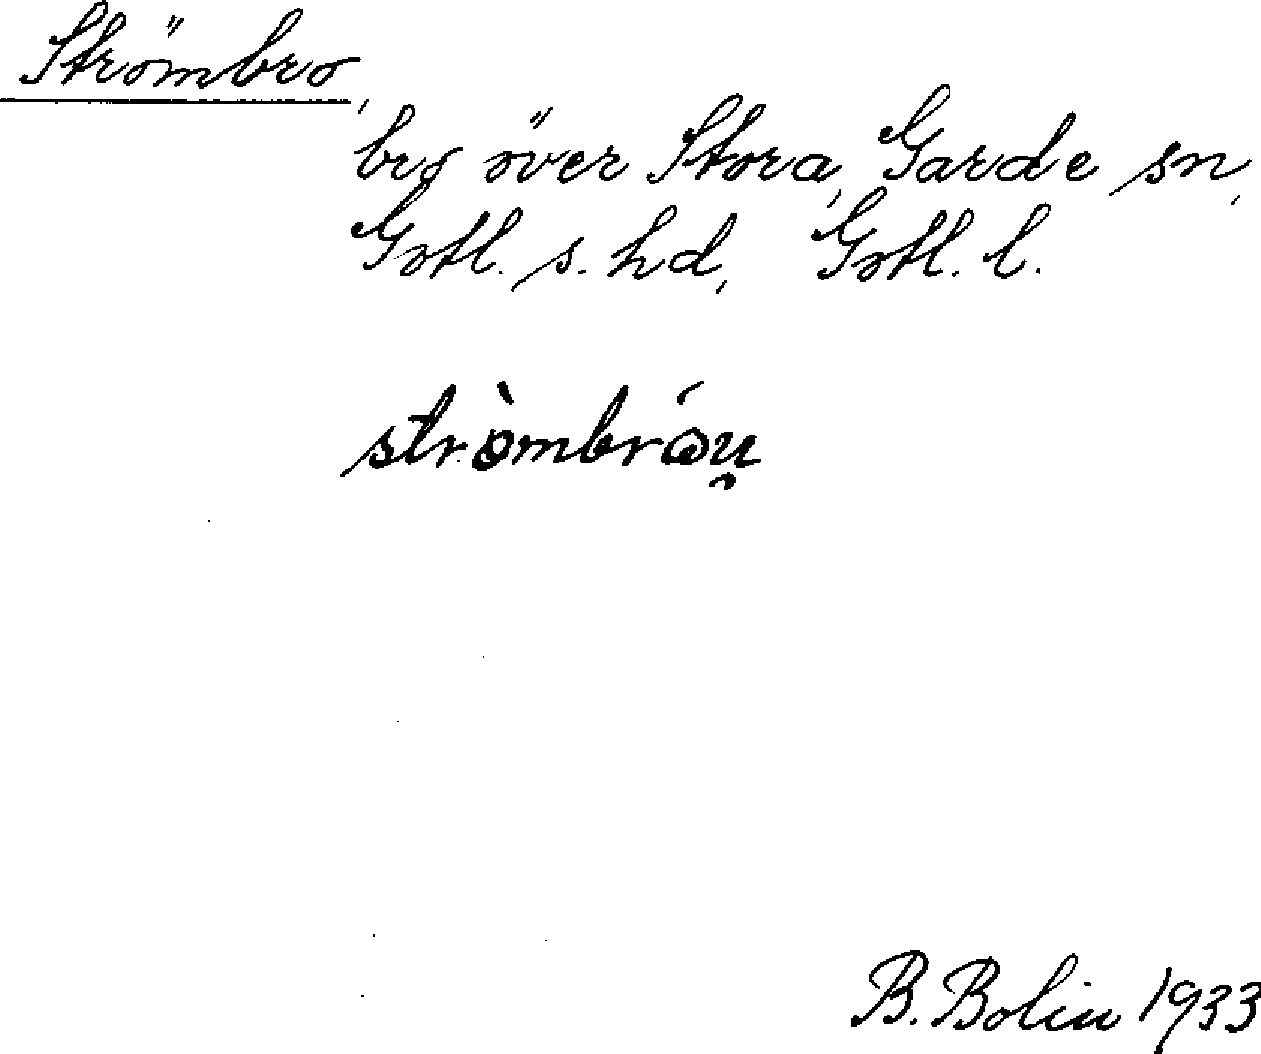 Strömbro,
bro över Stora, Garde sn,
Gotl. s. hd, Gotl. l.
B. Bolin 1933